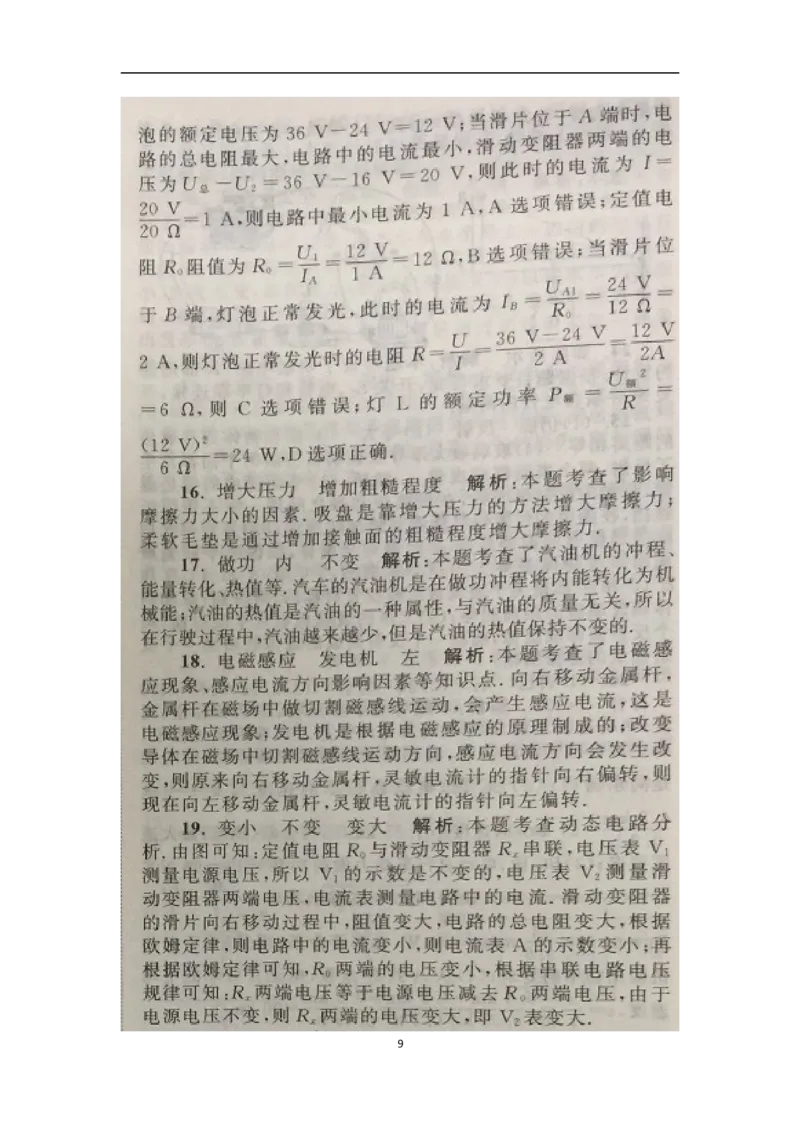 泡的额定电压为 36 V−24 V=12 V;当滑片位于 A 端时,电
路的总电阻最大,电路中的电流最小,滑动变阻器两端的电
压为 U总−U₂=36 V−16 V=20 V,则此时的电流为 I=
20 V/20 Ω=1 A,则电路中最小电流为 1 A,A 选项错误;定值电
阻 R₀阻值为 R₀=U₁/I_A=12 V/1 A=12 Ω,B 选项错误;当滑片位
于 B 端,灯泡正常发光,此时的电流为 I_B=U_A1/R₀=24 V/12 Ω=
2 A,则灯泡正常发光时的电阻 R=U/I=36 V−24 V/2 A=12 V/2A
=6 Ω,则 C 选项错误;灯 L 的额定功率 P额=U额²/R=
(12 V)²/6 Ω=24 W,D 选项正确.
16. 增大压力 增加粗糙程度 解析:本题考查了影响
摩擦力大小的因素.吸盘是靠增大压力的方法增大摩擦力;
柔软毛垫是通过增加接触面的粗糙程度增大摩擦力.
17. 做功 内 不变 解析:本题考查了汽油机的冲程、
能量转化、热值等.汽车的汽油机是在做功冲程将内能转化为机
械能;汽油的热值是汽油的一种属性,与汽油的质量无关,所以
在行驶过程中,汽油越来越少,但是汽油的热值保持不变的.
18. 电磁感应 发电机 左 解析:本题考查了电磁感
应现象、感应电流方向影响因素等知识点.向右移动金属杆,
金属杆在磁场中做切割磁感线运动,会产生感应电流,这是
电磁感应现象;发电机是根据电磁感应的原理制成的;改变
导体在磁场中切割磁感线运动方向,感应电流方向会发生改
变,则原来向右移动金属杆,灵敏电流计的指针向右偏转,则
现在向左移动金属杆,灵敏电流计的指针向左偏转.
19. 变小 不变 变大 解析:本题考查动态电路分
析.由图可知:定值电阻 R₀与滑动变阻器 Rₓ串联,电压表 V₁
测量电源电压,所以 V₁的示数是不变的,电压表 V₂测量滑
动变阻器两端电压,电流表测量电路中的电流.滑动变阻器
的滑片向右移动过程中,阻值变大,电路的总电阻变大,根据
欧姆定律,则电路中的电流变小,则电流表 A 的示数变小;再
根据欧姆定律可知,R₀两端的电压变小,根据串联电路电压
规律可知:Rₓ两端电压等于电源电压减去 R₀两端电压,由于
电源电压不变,则 Rₓ两端的电压变大,即 V₂表变大.
9